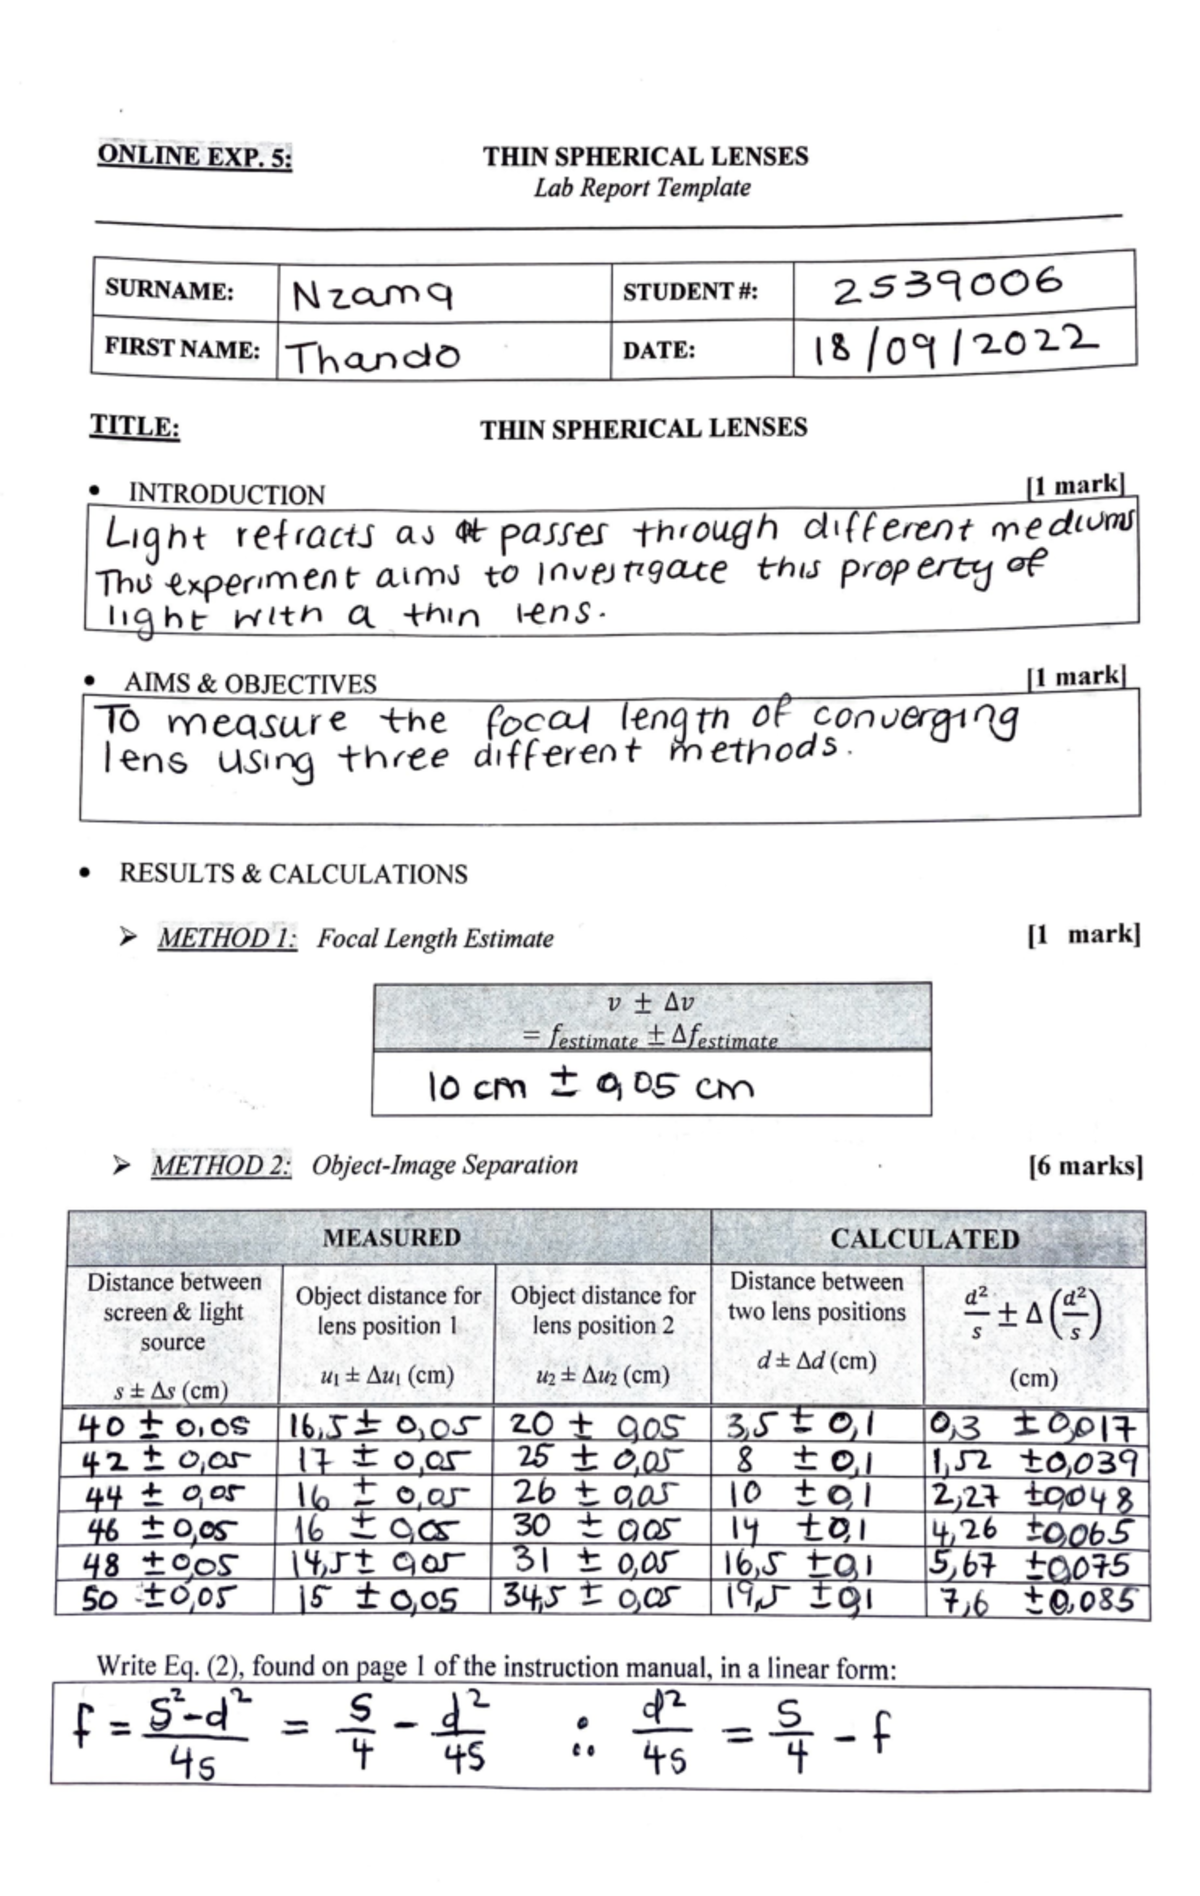 ONLINE EXP. 5: THIN SPHERICAL LENSES
Lab Report Template
SURNAME: Nzama STUDENT #: 2539006
FIRST NAME: Thando DATE: 18/09/2022
TITLE: THIN SPHERICAL LENSES
• INTRODUCTION [1 mark]
Light refracts as it passes through different mediums
This experiment aims to investigate this property of
light with a thin lens.
• AIMS & OBJECTIVES [1 mark]
To measure the focal length of converging
lens using three different methods.
• RESULTS & CALCULATIONS
➢ METHOD 1: Focal Length Estimate [1 mark]
v ± Δv
= f_estimate ± Δf_estimate
10 cm ± 0,05 cm
➢ METHOD 2: Object-Image Separation [6 marks]
MEASURED CALCULATED
Distance between screen & light source s ± Δs (cm)
Object distance for lens position 1 u₁ ± Δu₁ (cm)
Object distance for lens position 2 u₂ ± Δu₂ (cm)
Distance between two lens positions d ± Δd (cm)
d²/s ± Δ(d²/s) (cm)
40 ± 0,05 16,5 ± 0,05 20 ± 0,05 3,5 ± 0,1 0,3 ± 0,017
42 ± 0,05 17 ± 0,05 25 ± 0,05 8 ± 0,1 1,52 ± 0,039
44 ± 0,05 16 ± 0,05 26 ± 0,05 10 ± 0,1 2,27 ± 0,048
46 ± 0,05 16 ± 0,05 30 ± 0,05 14 ± 0,1 4,26 ± 0,065
48 ± 0,05 14,5 ± 0,05 31 ± 0,05 16,5 ± 0,1 5,67 ± 0,075
50 ± 0,05 15 ± 0,05 34,5 ± 0,05 19,5 ± 0,1 7,6 ± 0,085
Write Eq. (2), found on page 1 of the instruction manual, in a linear form:
f = (S² - d²)/4s = S/4 - d²/4S ∴ d²/4s = S/4 - f